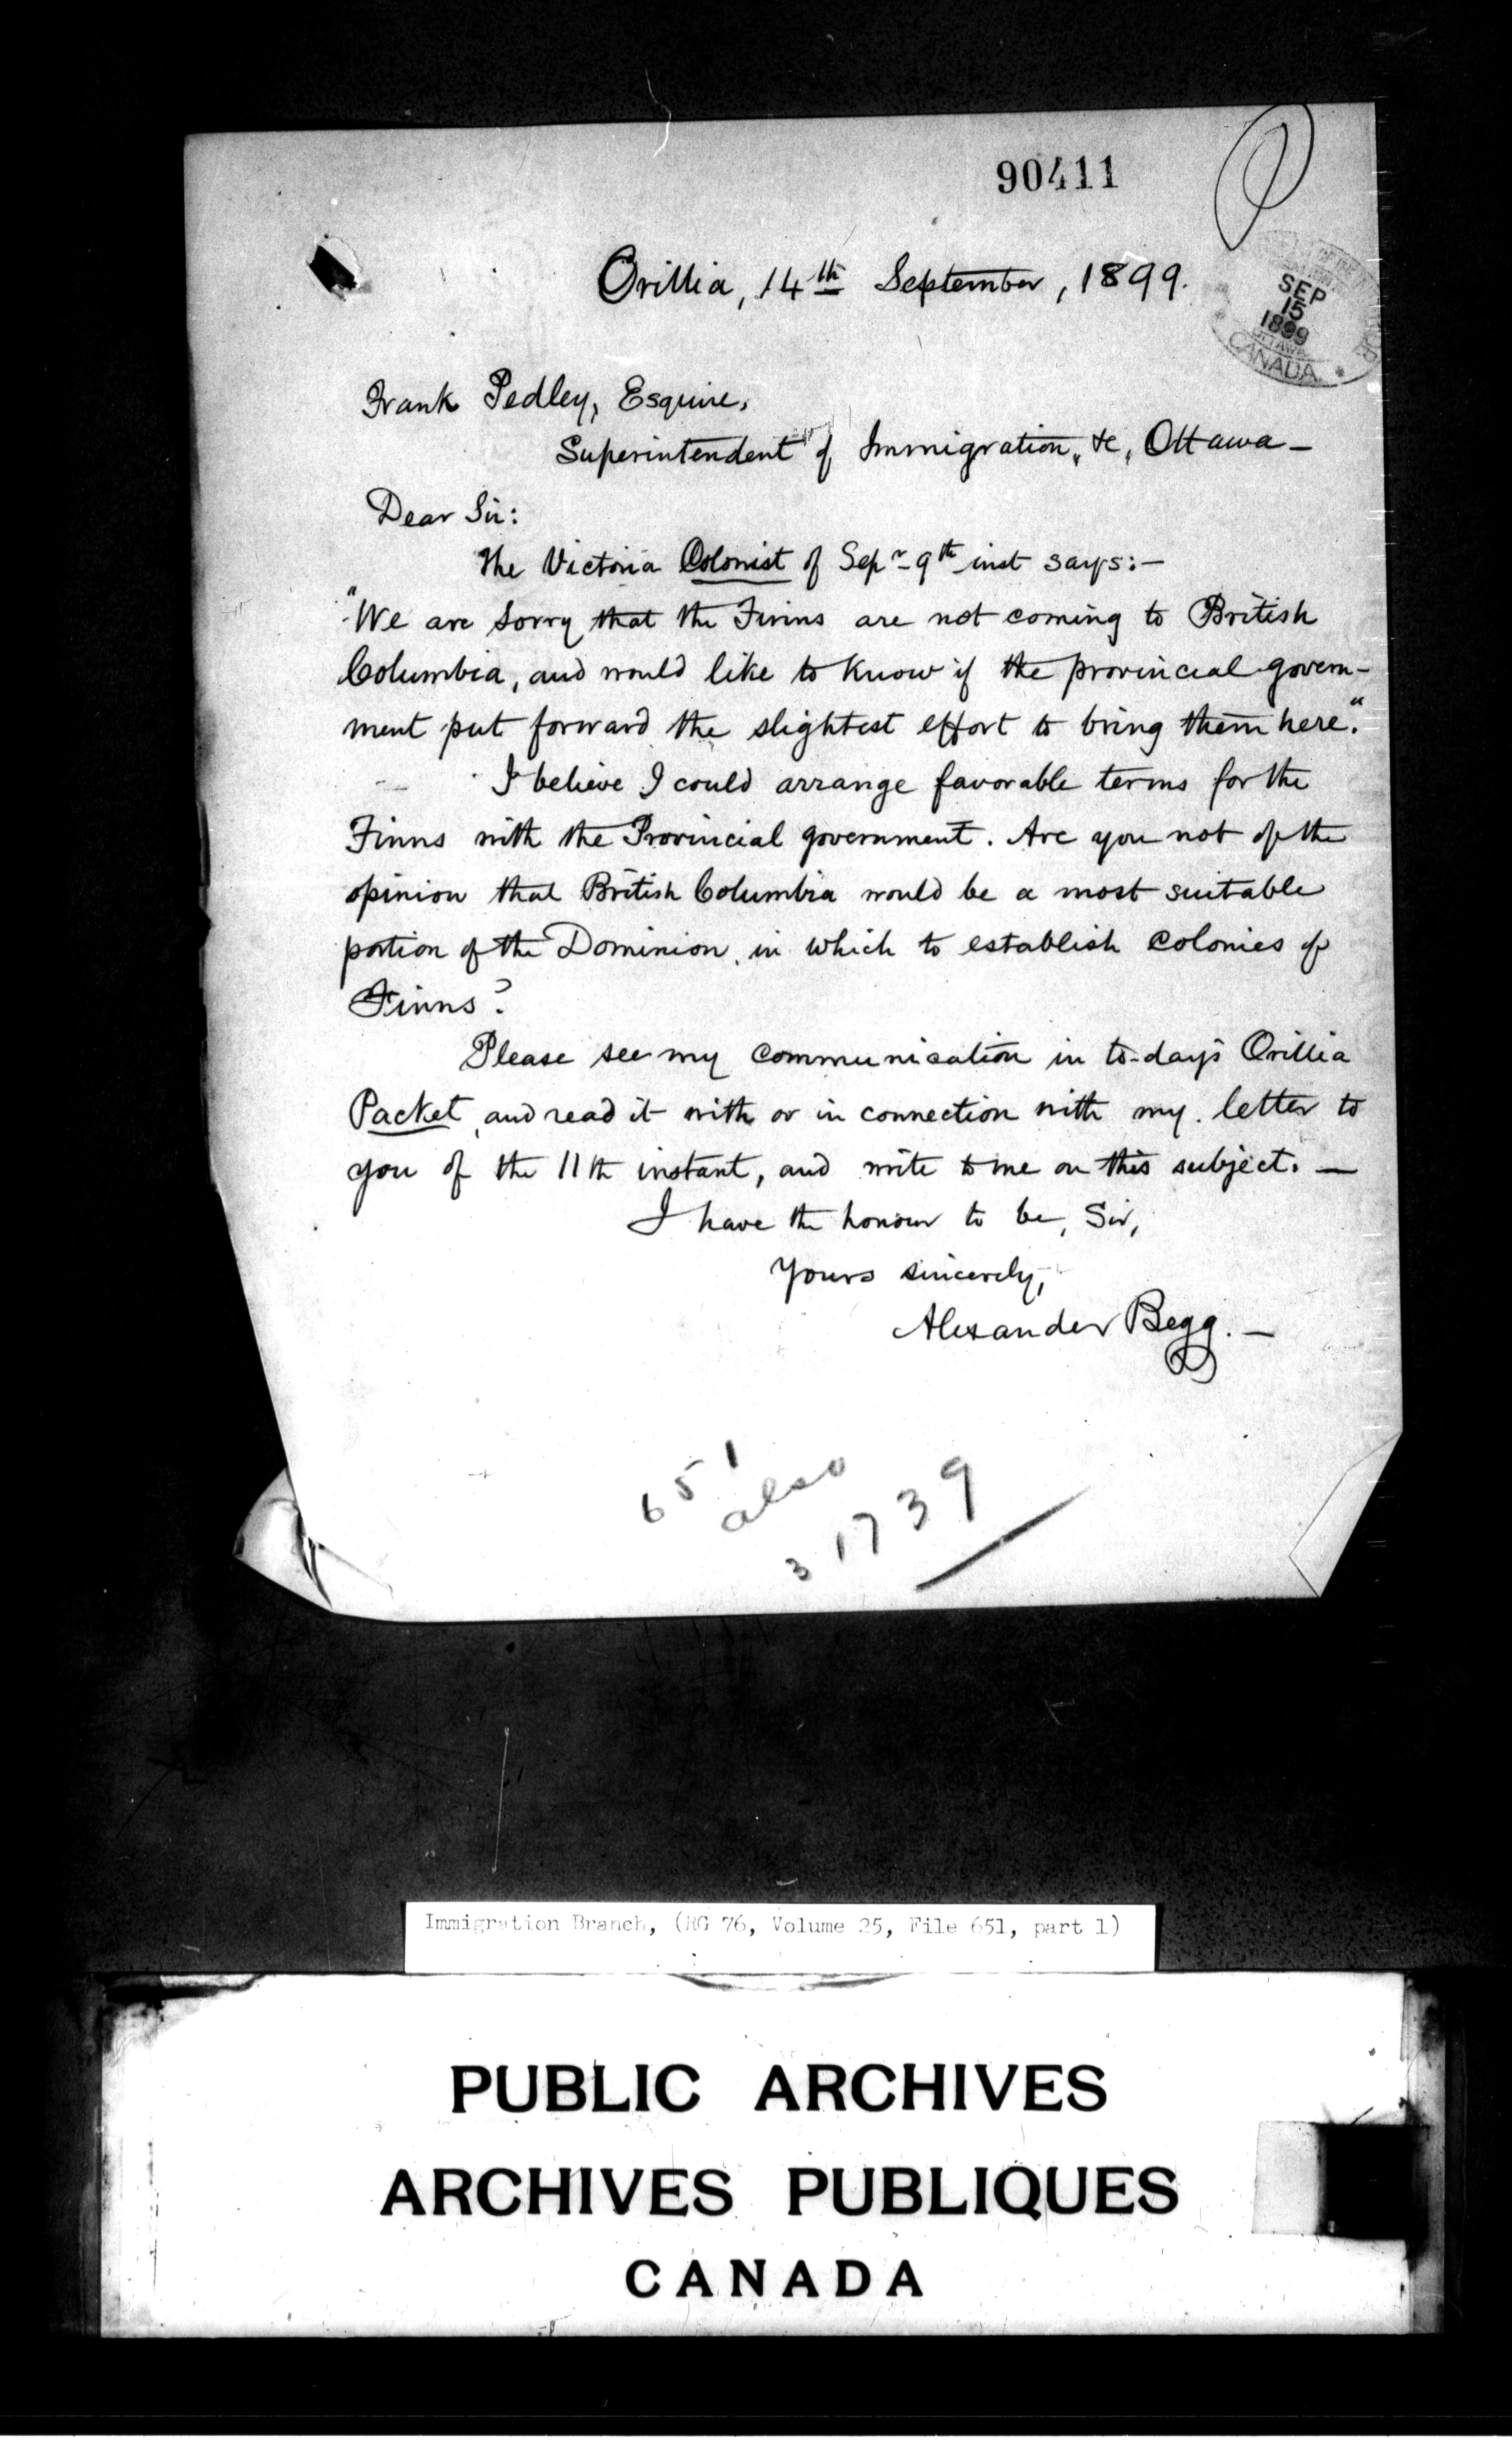 90411
Orillia, 14th September, 1899.
SEP
15
1899
OTTAWA
CANADA
Frank Pedley, Esquire,
Superintendent of Immigration, &c, Ottawa —
Dear Sir:
The Victoria Colonist of Sepr 9th inst says:—
"We are sorry that the Finns are not coming to British
Columbia, and would like to know if the provincial govern-
ment put forward the slightest effort to bring them here."
I believe I could arrange favorable terms for the
Finns with the Provincial government. Are you not of the
opinion that British Columbia would be a most suitable
portion of the Dominion, in which to establish Colonies of
Finns?
Please see my communication in to-day's Orillia
Packet, and read it with or in connection with my letter to
you of the 11th instant, and write to me on this subject. —
I have the honour to be, Sir,
Yours sincerely,
Alexander Begg. —
651
also
31739
Immigration Branch, (RG 76, Volume 25, File 651, part 1)
PUBLIC ARCHIVES
ARCHIVES PUBLIQUES
CANADA